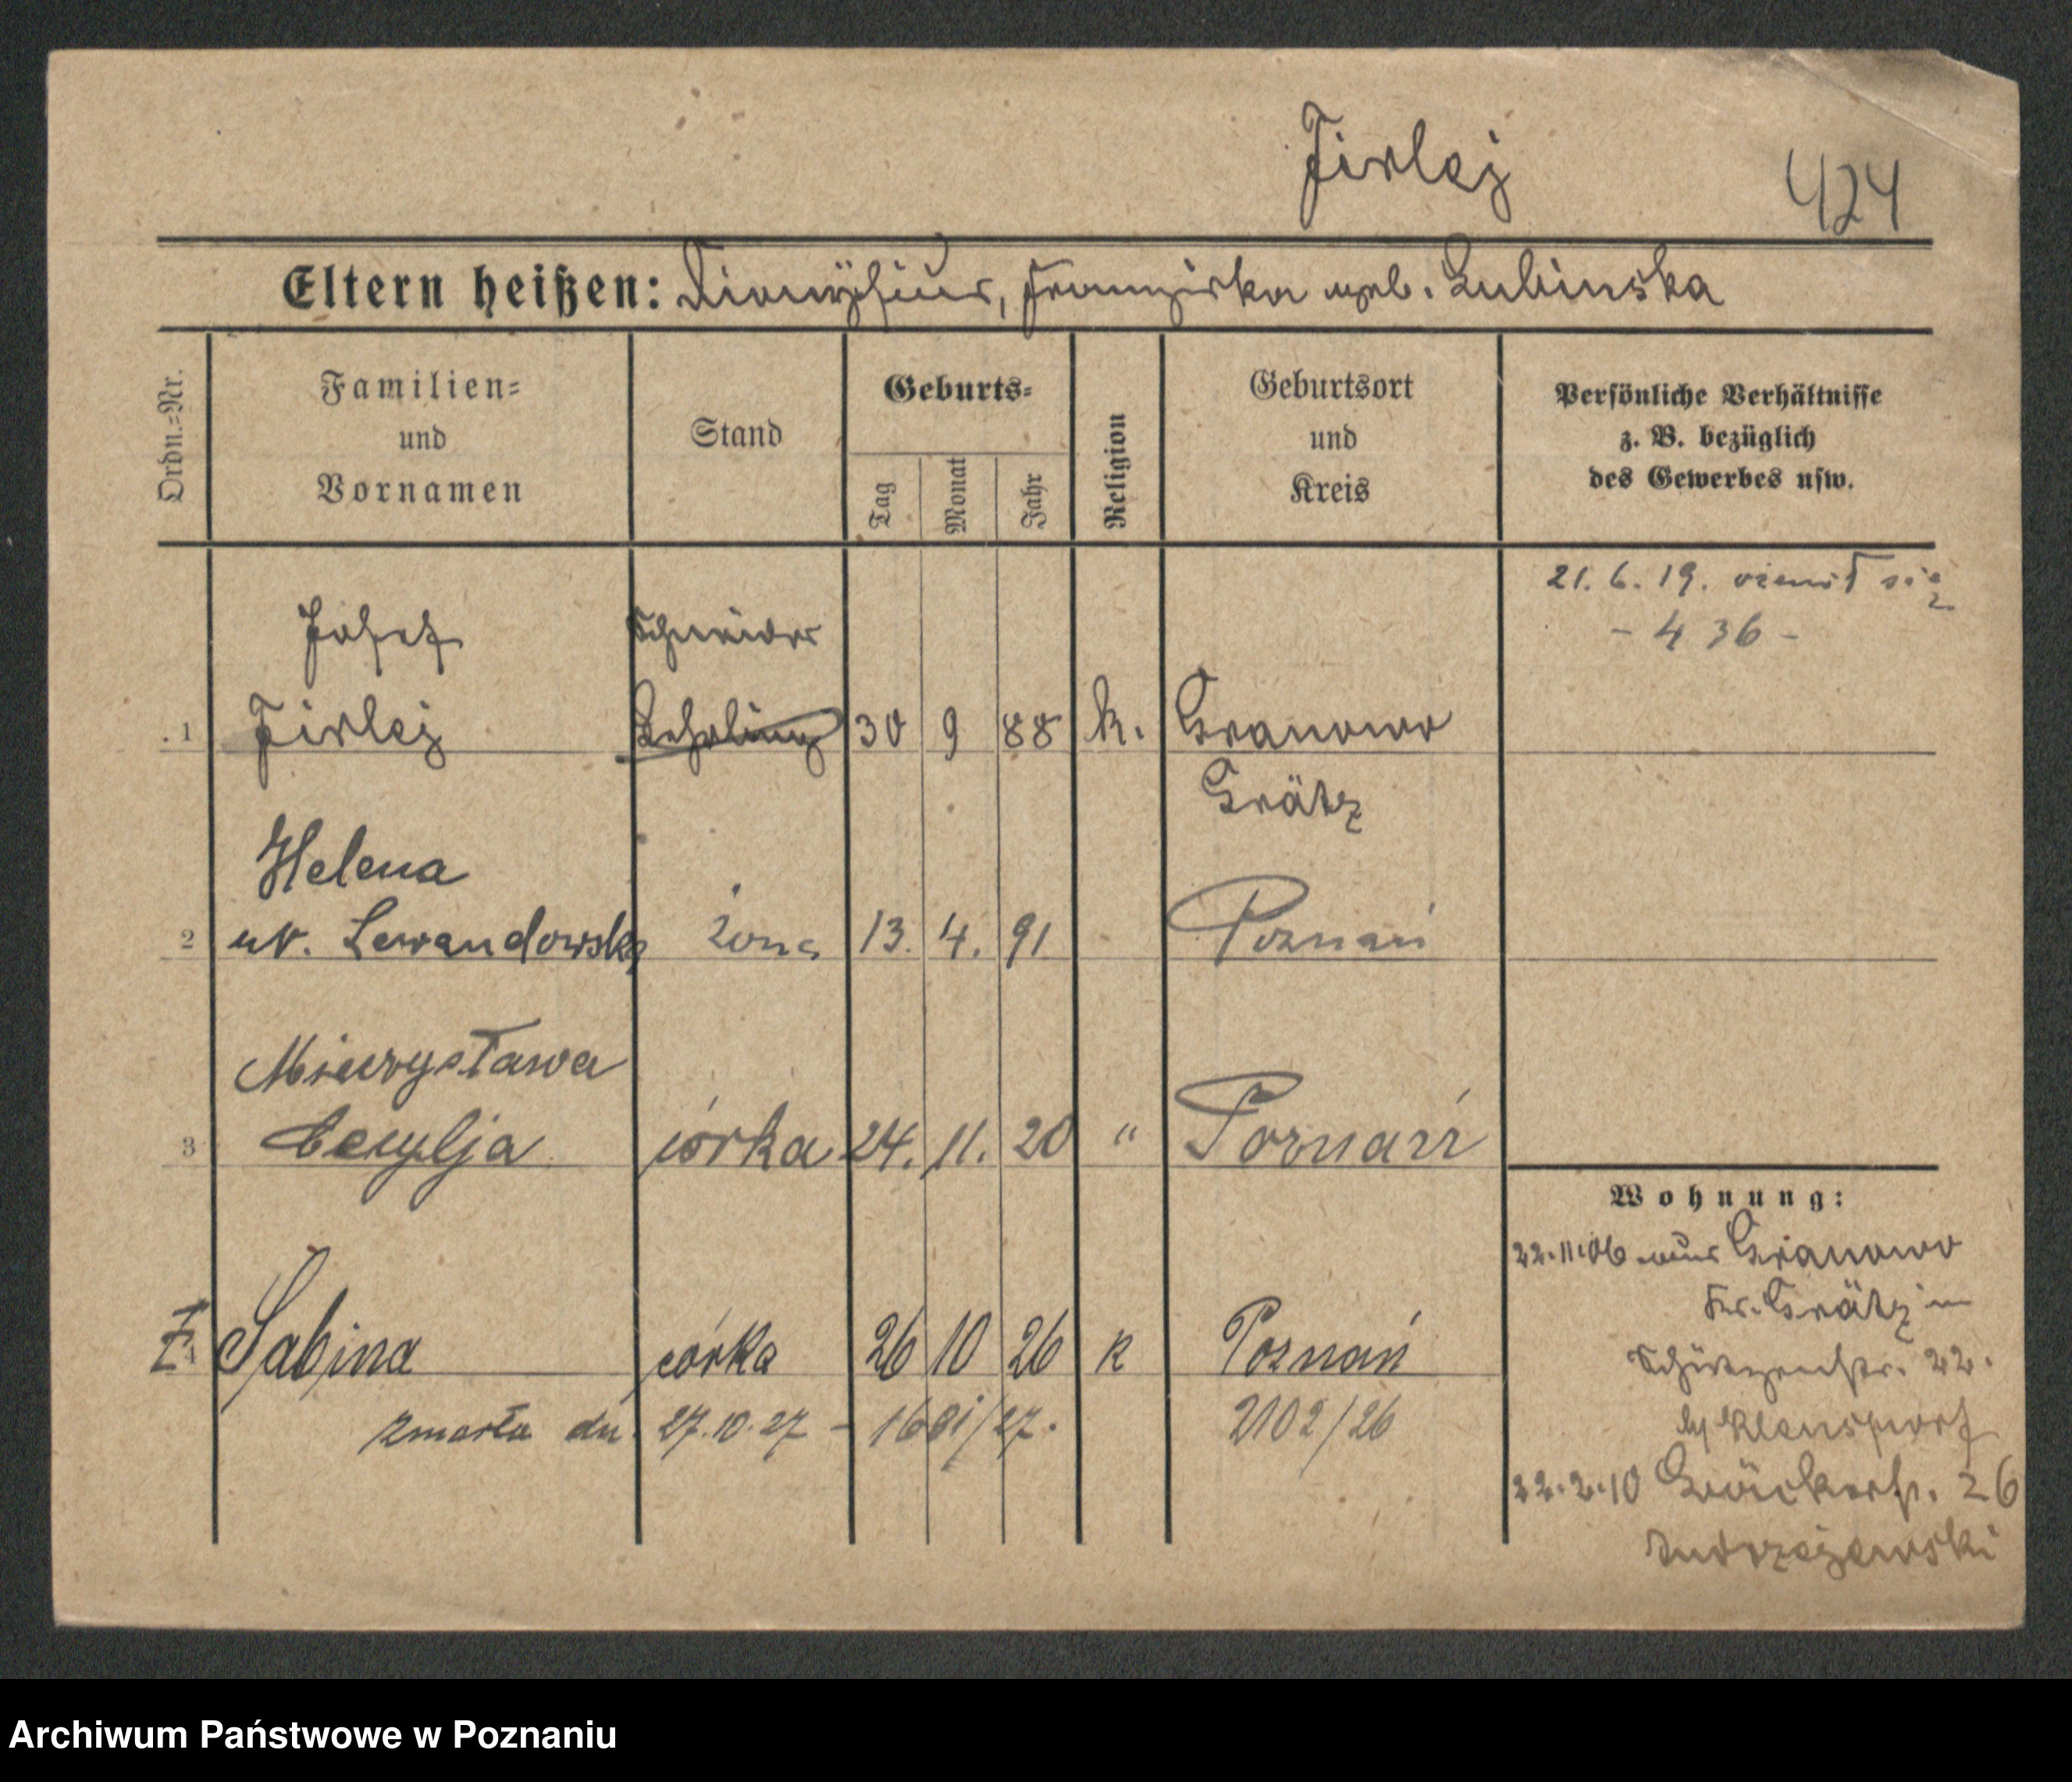 Firlej
424
Eltern heißen: Dionysius, Franziska geb. Lubinska
Ordn.=Nr.
Familien=
und
Vornamen
Stand
Geburts=
Tag
Monat
Jahr
Religion
Geburtsort
und
Kreis
Persönliche Verhältnisse
z. B. bezüglich
des Gewerbes usw.
21. 6. 19. ożenił się z
- 436 -
Josef Schneider
1 Firlej Lehrling 30 9 88 k. Granowo
Grätz
Helena
2 ur. Lewandowska żona 13. 4. 91 Poznań
Mieczysława
3 Cecylja córka 24. 11. 20 " Poznań
4 Sabina córka 26 10 26 k Poznań
zmarła dn. 27.10.27 - 1681/27.
2102/26
Wohnung:
22.11.06 aus Granowo
Kr. Grätz in
Schützenstr. 22.
by
22.2.10 26
Andrzejewski
Archiwum Państwowe w Poznaniu